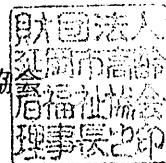 財団法人
延岡市高齢
者福祉協会
理事長之印